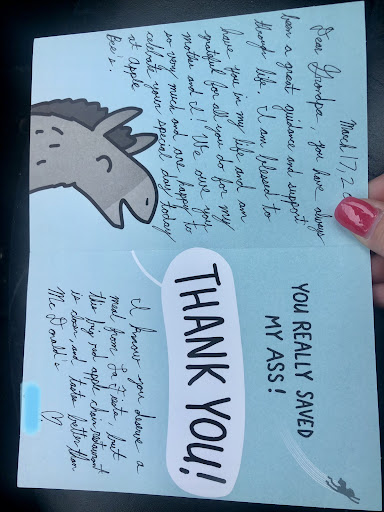 March 17, 2
Dear Grandpa, you have always
been a great guidance and support
through life. I am blessed to
have you in my life and am
grateful for all you do for my
mother and I! We owe you
so very much and are happy to
celbrate your special day today
at Apple
Bee's.
YOU REALLY SAVED
MY ASS!
THANK YOU!
I know you deserve a
meal from but
this big red apple chain restaurant
is and tastes better than
McDonald's ♡